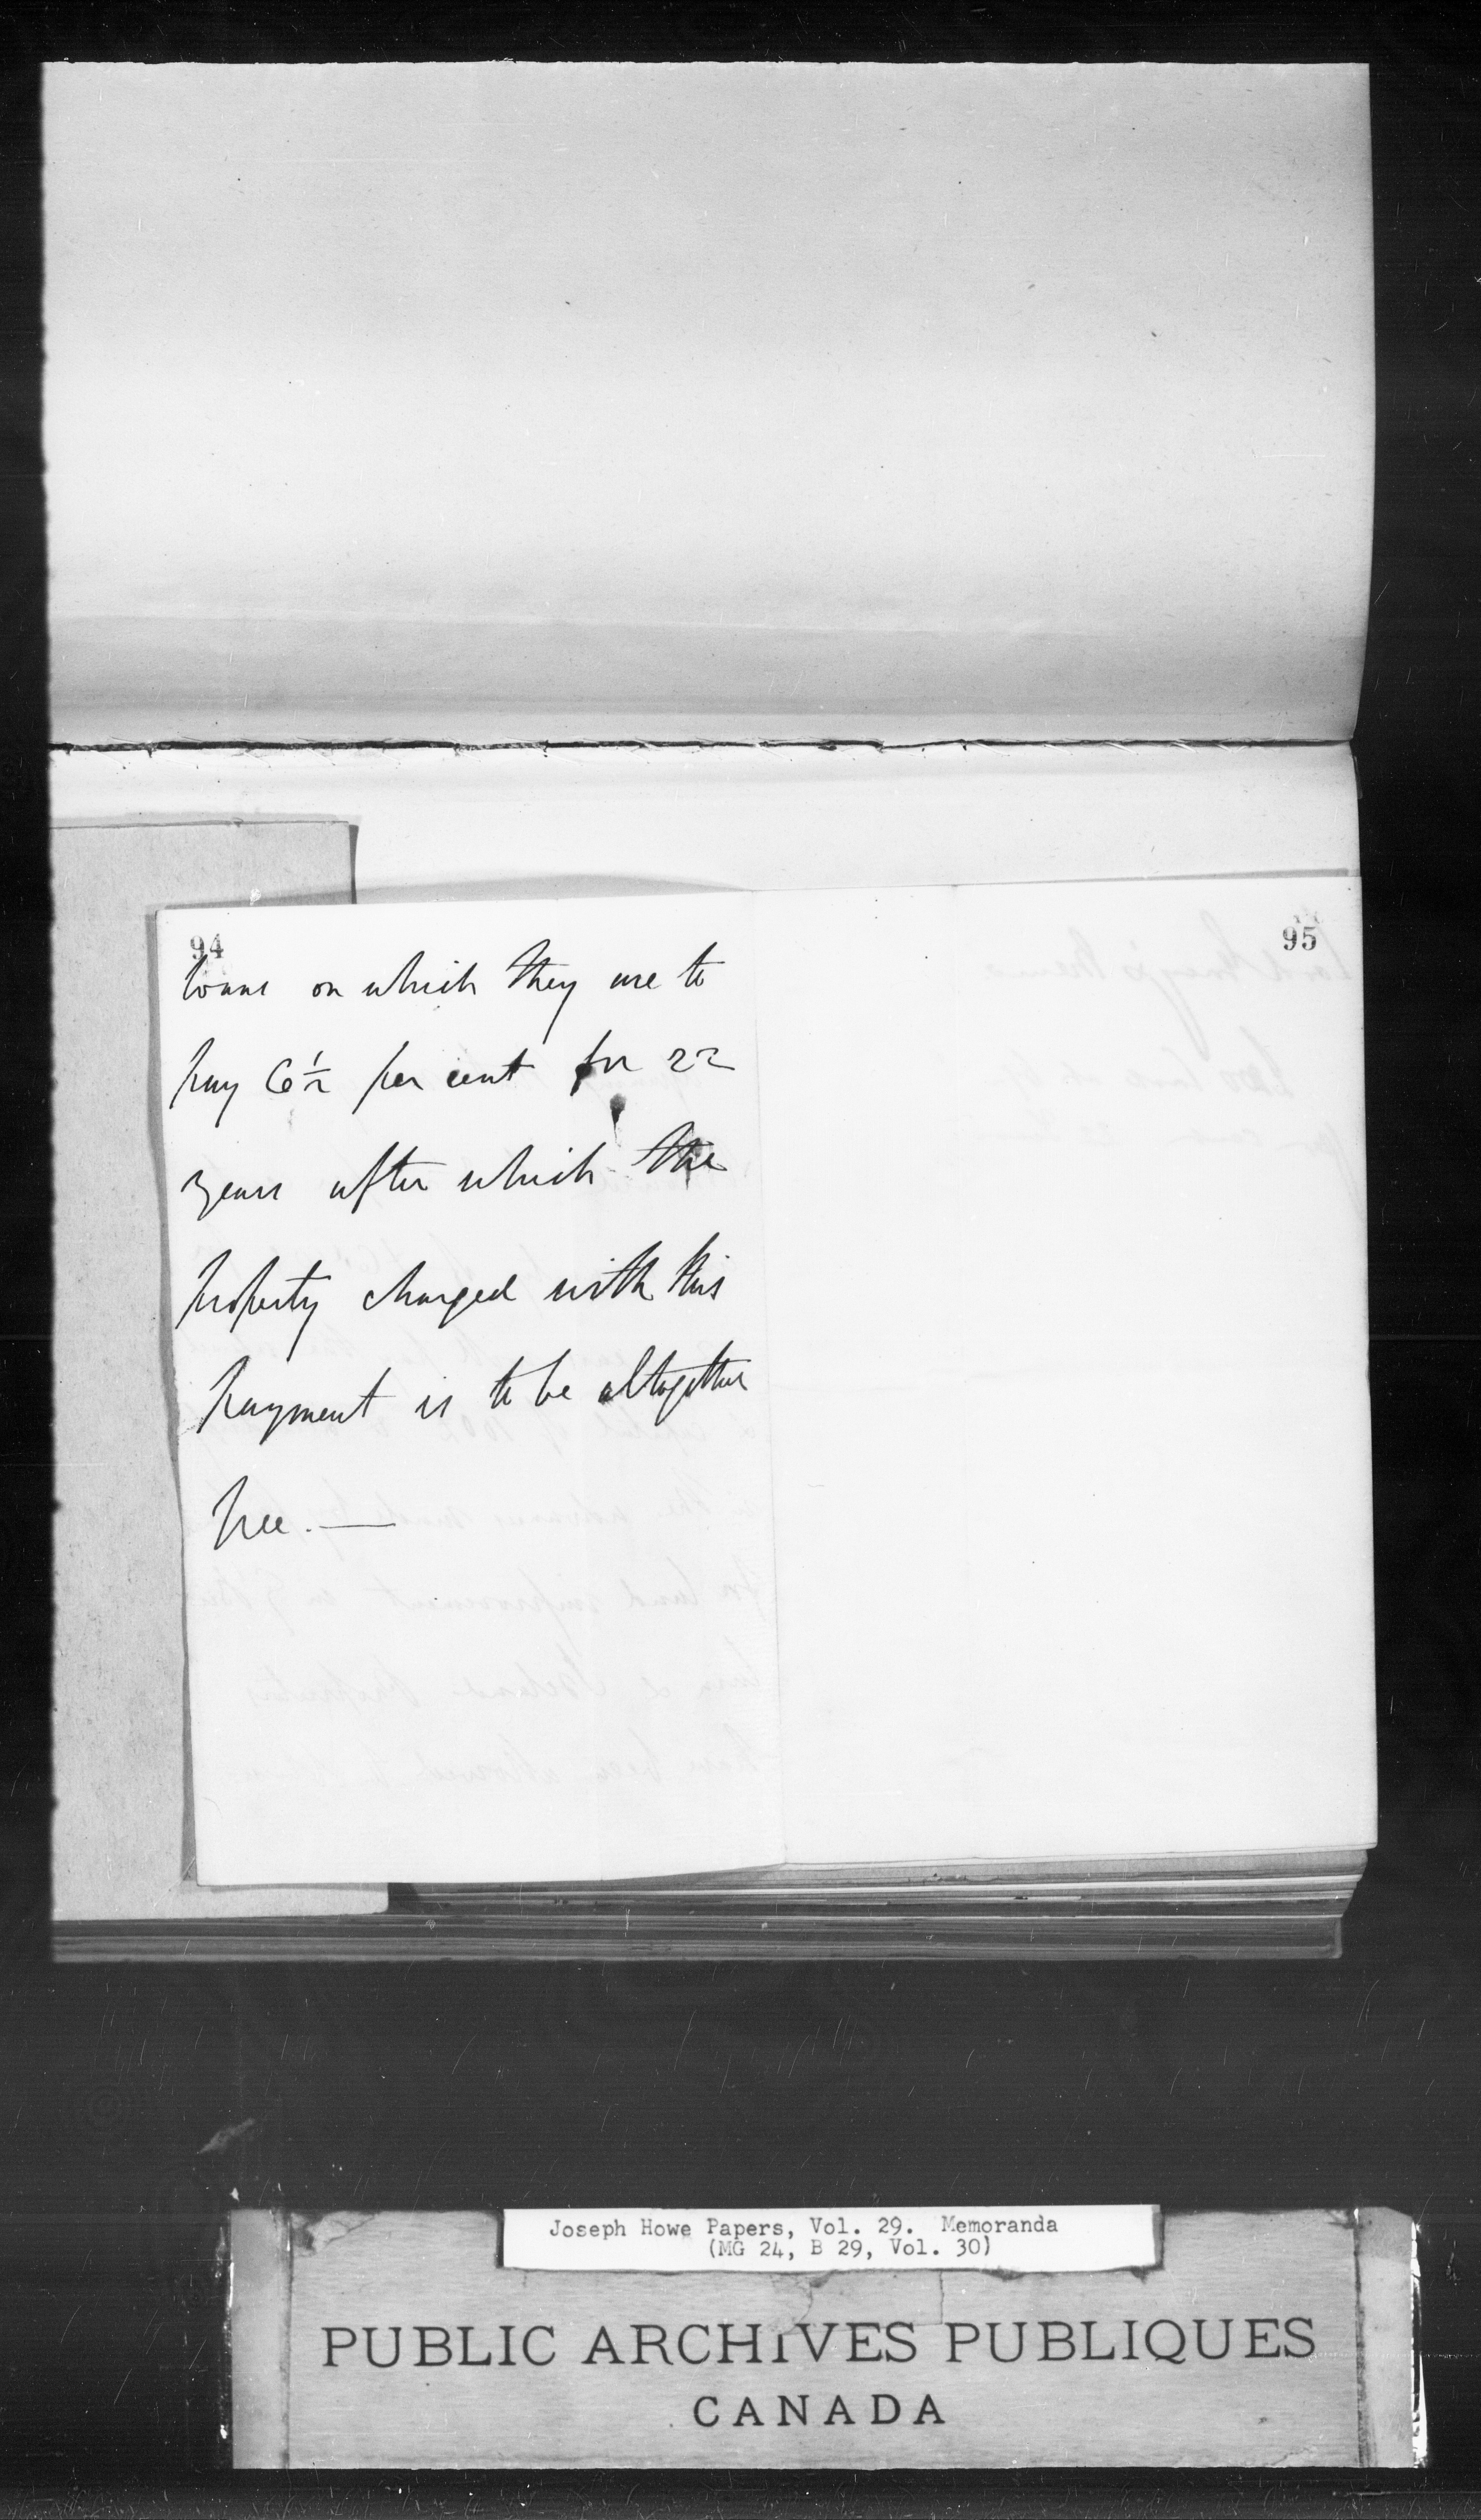 94
loans on which they are to
pay 6 1/2 per cent for 22
years after which the
property charged with this
payment is to be altogether
free. —
95
Joseph Howe Papers, Vol. 29. Memoranda
(MG 24, B 29, Vol. 30)
PUBLIC ARCHIVES PUBLIQUES
CANADA